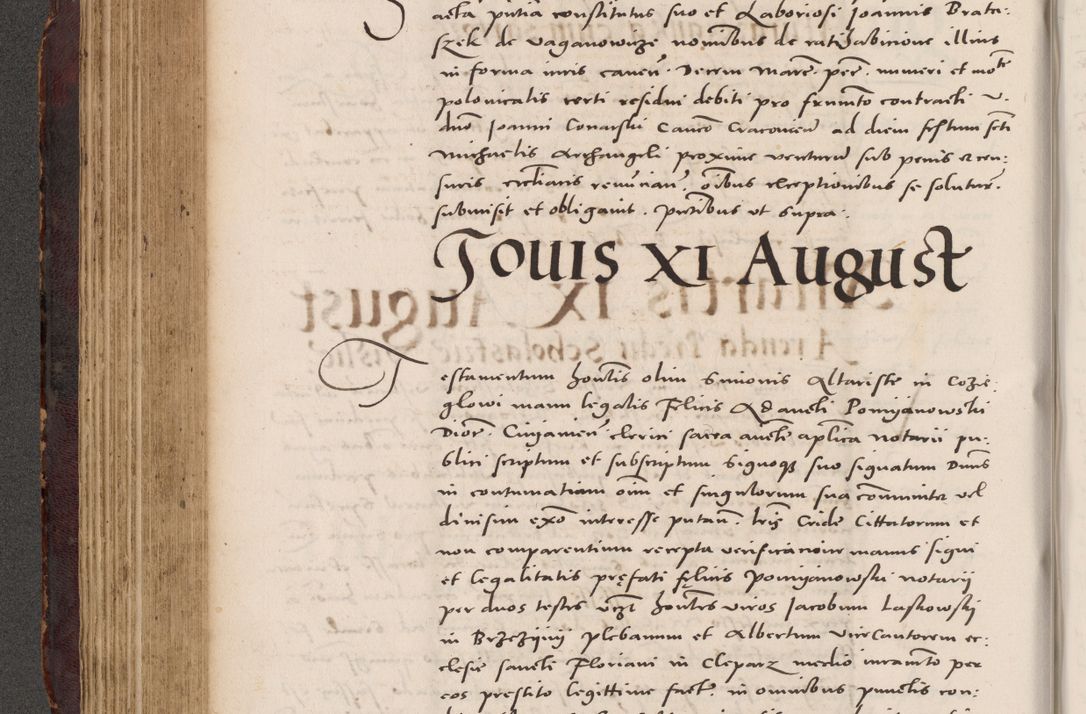 acta personaliter constitutus suo et Laboriosi Joannis Brata-
szek de Vaganowicze nominibus de ratihabicione illius
in forma iuris caven. Decem marc. pec. numeri et monete
polonicalis certi residui debiti pro frumento contracti V.
dno Joanni Conarski Canco Cracovien ad diem festum scti
Michaelis Archangeli proxime venturum sub penis et cen-
suris ecclesiasticis renuncian. oibus exceptionibus se soluturum
submisit et obligavit. pntibus ut supra.
Jouis XI August
Testamentum honestis olim Simonis Altariste in Cozie-
glowi manu legalis Felicis Adaucti Pomyanowski
Dioc. Cuyavien clerici sacra aucte aplica notarii pu-
blici scriptum et subscriptum signoque suo signatum Dnus
in contumatiam oim et singulorum sua communiter vel
divisim ex interesse putan. lris Cride Cittatorum et
non comparentium recepta verificacione manus signi
et legalitatis pręfati fęlicis Pomyanowski notarii
per duos testes vczt hontes viros Jacobum Laskowskj
in Brzezÿmÿ plebanum et Albertum viceCantorem ec-
clesie sancti Floriani in Cleparz medio iuramto per
eos prestito legittime fact in omnibus punctis con-